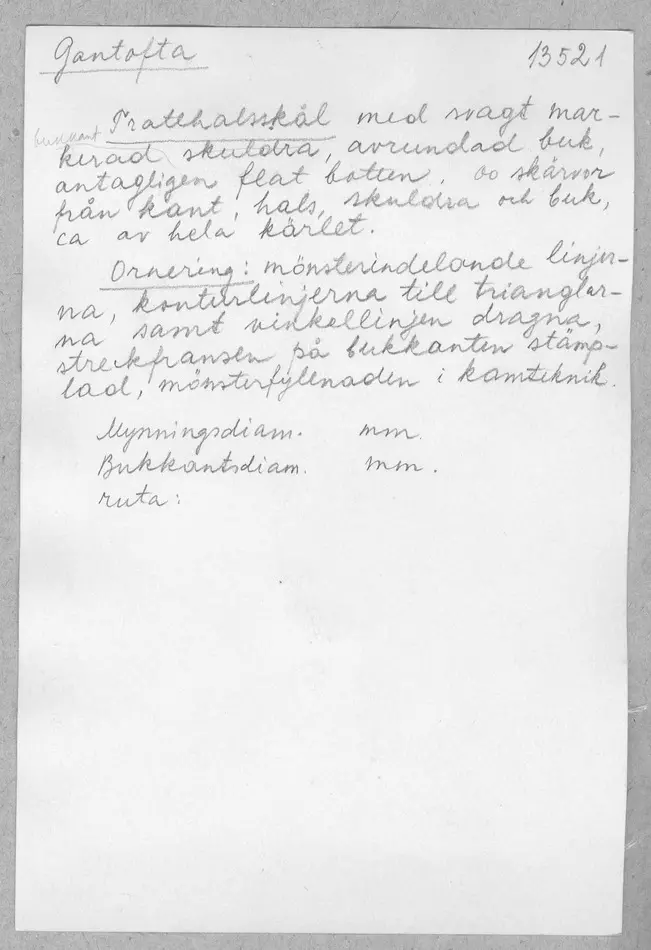 Gantofta 13521
bukkant
Tratthalsskål med svagt mar-
kerad skuldra, avrundad buk,
antagligen flat botten. oo skärvor
från kant, hals, skuldra och buk,
ca av hela kärlet.
Ornering: mönsterindelande linjer-
na, konturlinjerna till trianglar-
na samt vinkellinjen dragna,
streckfransen på bukkanten stämp-
lad, mönsterfyllnaden i kamteknik.
Mynningsdiam. mm.
Bukkantsdiam. mm.
ruta: